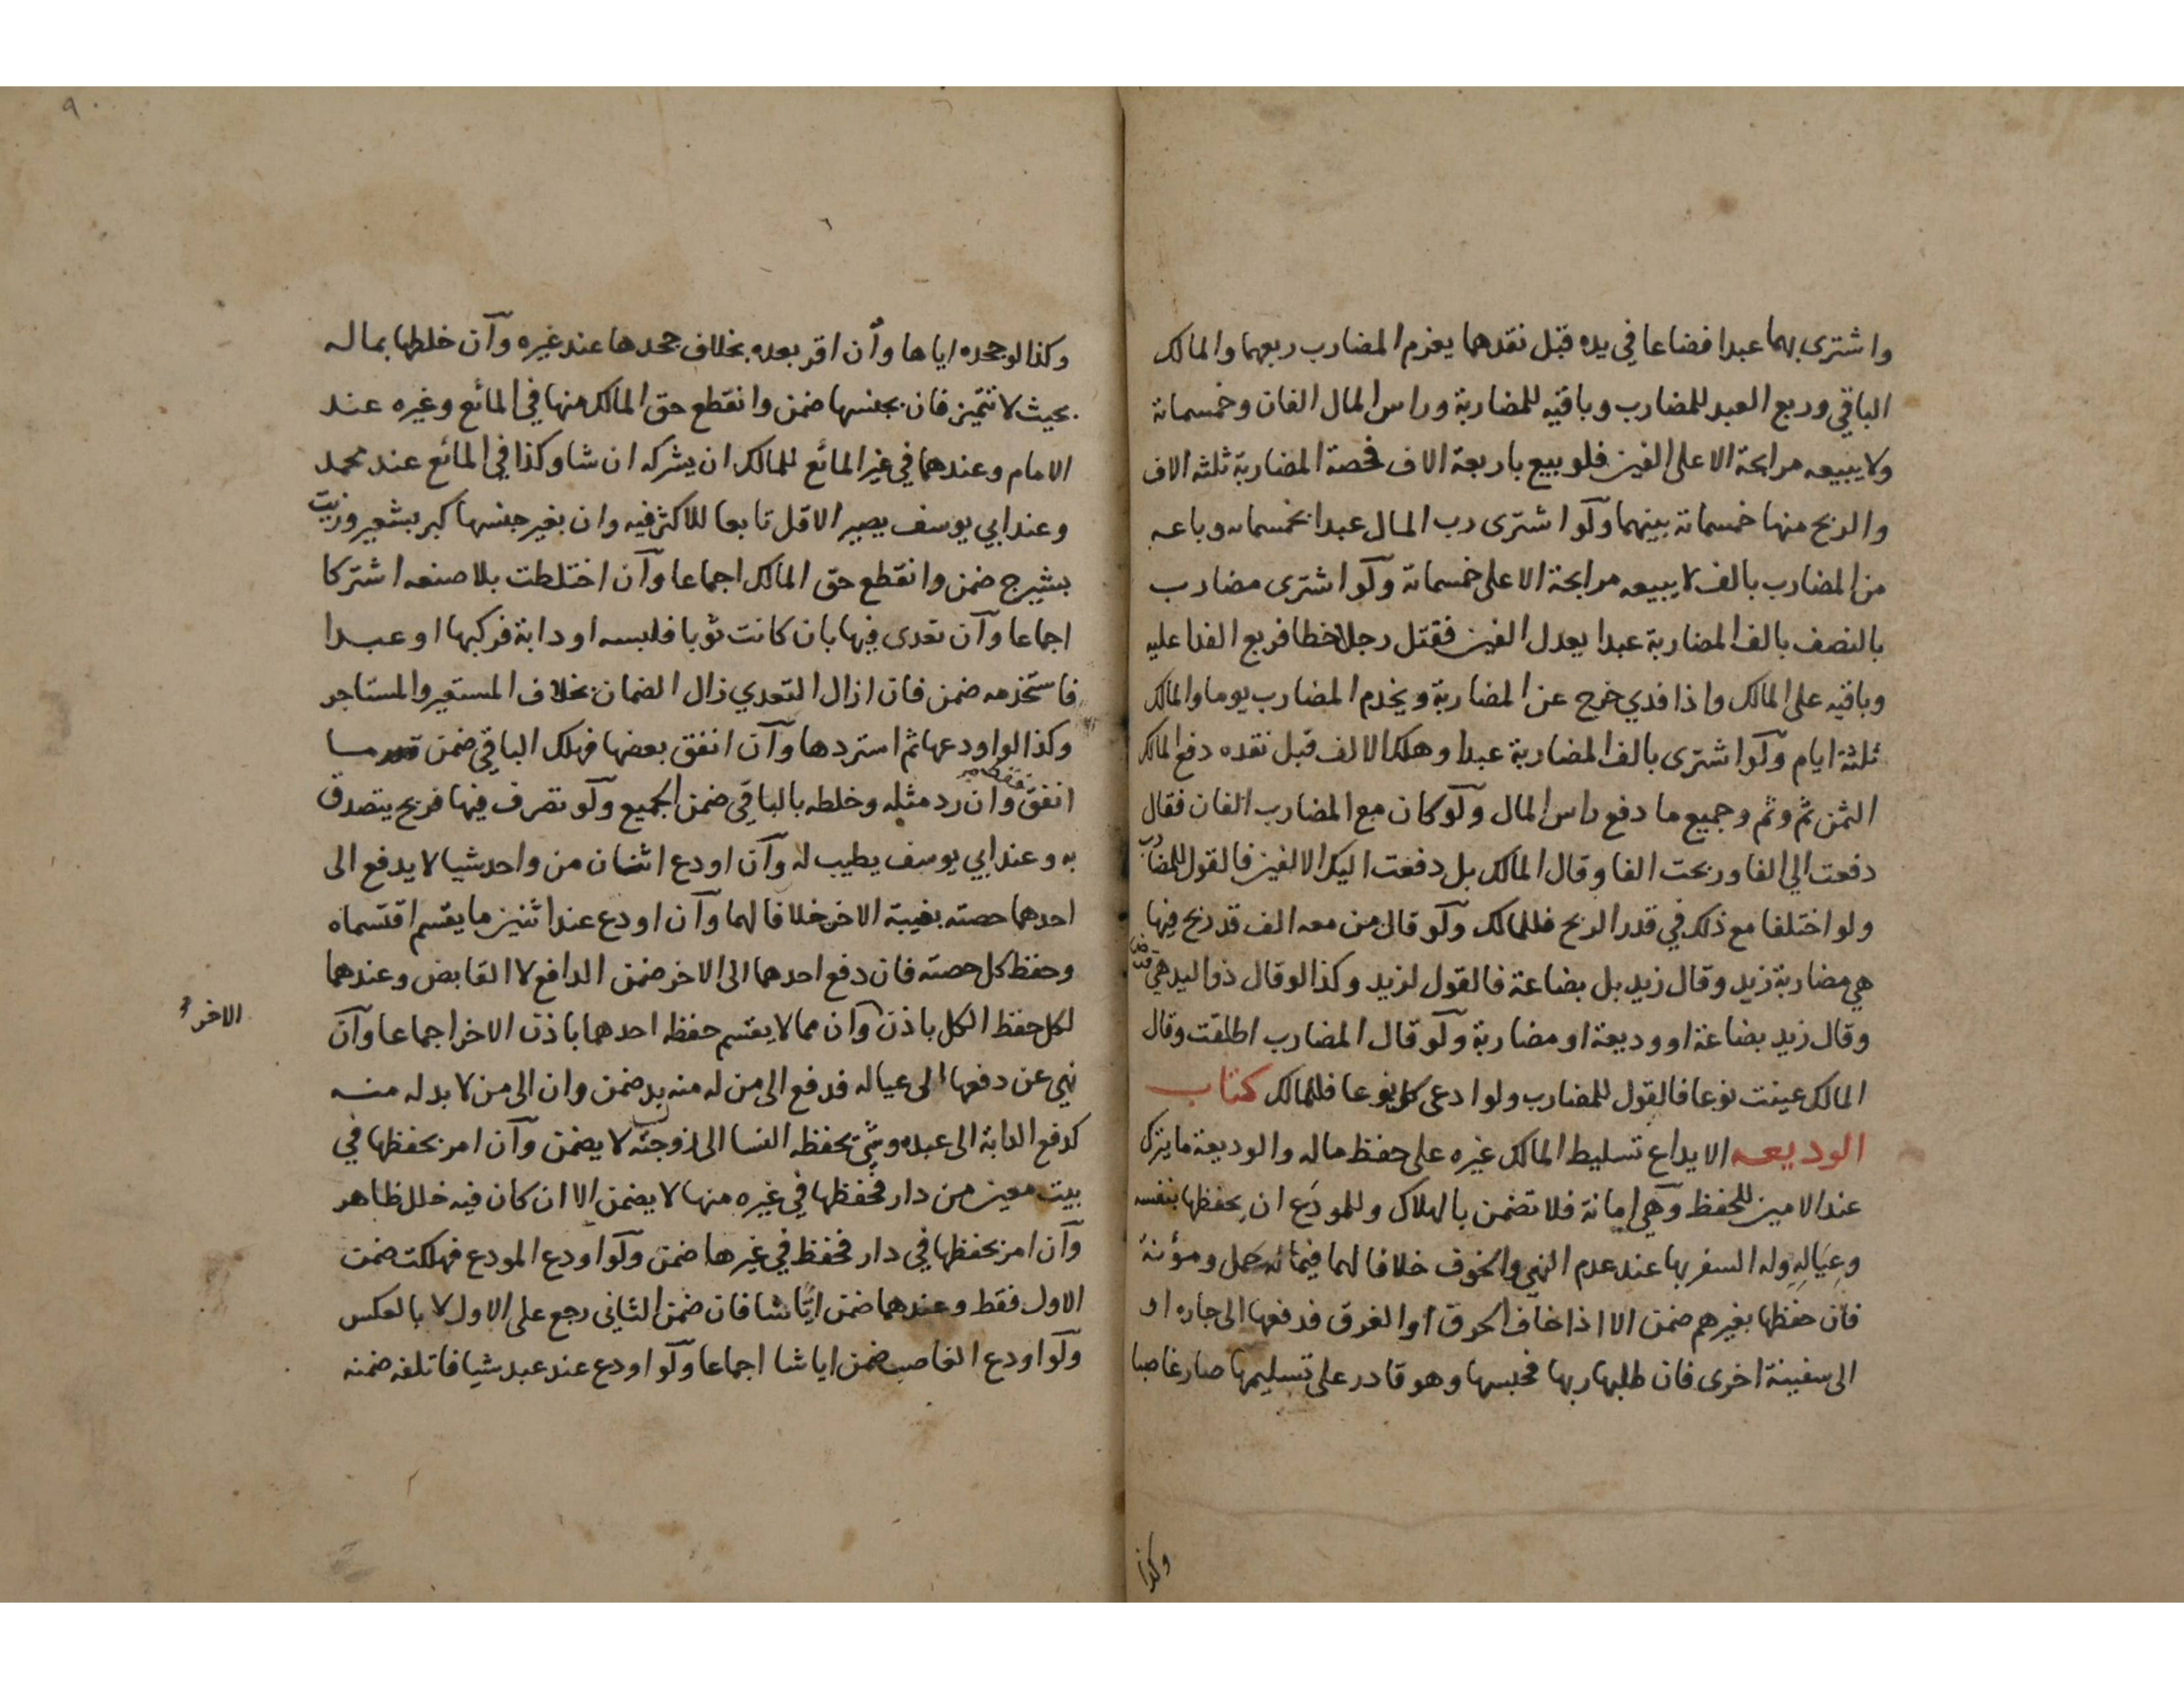 واشترى بهما عبدا فضاعا في يده قبل نقدهما يغرم المضارب ربعهما والمالك
الباقي وربع العبد للمضارب وباقيه للمضاربة وراس المال الفان وخمسمائة
ولا يبيعه مرابحة الا على الفين فلو بيع باربعة الاف فحصة المضاربة ثلثة الاف
والربح منها خمسمائة بينهما ولو اشترى رب المال عبدا بخمسمائه وباعه
من المضارب بالف لا يبيعه مرابحة الا على خمسمائة ولو اشترى مضارب
بالنصف بالف المضاربة عبدا يعدل الفين فقتل رجلا خطا فربع الفدا عليه
وباقيه على المالك واذا فدي خرج عن المضاربة ويخدم المضارب يوما والمالك
ثلثة ايام ولو اشترى بالف المضاربة عبدا وهلك الالف قبل نقده دفع المالك
الثمن ثم وثم وجميع ما دفع راس المال ولو كان مع المضارب الفان فقال
دفعت الي الفا وربحت الفا وقال المالك بل دفعت اليك الالفين فالقول للمضارب
ولو اختلفا مع ذلك في قدر الربح فللمالك ولو قال من معه الف قد ربح فيها
هي مضاربة زيد وقال زيد بل بضاعة فالقول لزيد وكذا لو قال ذو اليد هي قرض
وقال زيد بضاعة او وديعة او مضاربة ولو قال المضارب اطلقت وقال
المالك عينت نوعا فالقول للمضارب ولو ادعى كل نوعا فللمالك كتاب
الوديعه الايداع تسليط المالك غيره على حفظ ماله والوديعة ما يترك
عند الامين للحفظ وهي امانة فلا تضمن بالهلاك وللمودَع ان يحفظها بنفسه
وعِيَالِهِ وله السفر بها عند عدم النهي والخوف خلافا لهما فيما له حمل ومؤنة
فان حفظها بغيرهم ضمن الا اذا خاف الحرق او الغرق فدفعها الى جاره او
الى سفينة اخرى فان طلبها ربها فحبسها وهو قادر على تسليمها صار غاصبا
وكذا
وكذا لو جحده اياها وان اقر بعده بخلاف جحدها عند غيره وان خلطها بماله
بحيث لا تتميز فان بجنسها ضمن وانقطع حق المالك منها في المائع وغيره عند
الامام وعندهما في غير المائع للمالك ان يشركه ان شا وكذا في المائع عند محمد
وعند ابي يوسف يصير الاقل تابعا للاكثر فيه وان بغير جنسها كبر بشعير وزيت
بشيرج ضمن وانقطع حق المالك اجماعا وان اختلطت بلا صنعه اشتركا
اجماعا وان تعدى فيها بان كانت ثوبا فلبسه او دابة فركبها او عبدا
فاستخدمه ضمن فان ازال التعدي زال الضمان بخلاف المستعير والمستاجر
وكذا لو اودعها ثم استردها وان انفق بعضها فهلك الباقي ضمن قدر ما
انفق فقط وان رد مثله وخلطه بالباقي ضمن الجميع ولو تصرف فيها فربح يتصدق
به وعند ابي يوسف يطيب له وان اودع اثنان من واحد شيا لا يدفع الى
احدهما حصته بغيبة الاخر خلافا لهما وان اودع عند اثنين ما يقسم اقتسماه
وحفظ كل حصته فان دفع احدهما الى الاخر ضمن الدافع لا القابض وعندهما
لكل حفظ الكل باذن وان مما لا يقسم حفظه احدهما باذن الاخر اجماعا وان
الاخر
نهي عن دفعها الى عياله فدفع الى من له منه بد ضمن وان الى من لا بد له منه
كدفع الدابة الى عبده وشئ يحفظه النسا الى زوجته لا يضمن وان امر بحفظها في
بيت معين من دار فحفظها في غيره منها لا يضمن الا ان كان فيه خلل ظاهر
وان امر بحفظها في دار فحفظ في غيرها ضمن ولو اودع المودع فهلكت ضمن
الاول فقط وعندهما ضمن ايًّا شا فان ضمن الثاني رجع على الاول لا بالعكس
ولو اودع الغاصب ضمن ايا شا اجماعا ولو اودع عند عبد شيا فاتلفه ضمنه